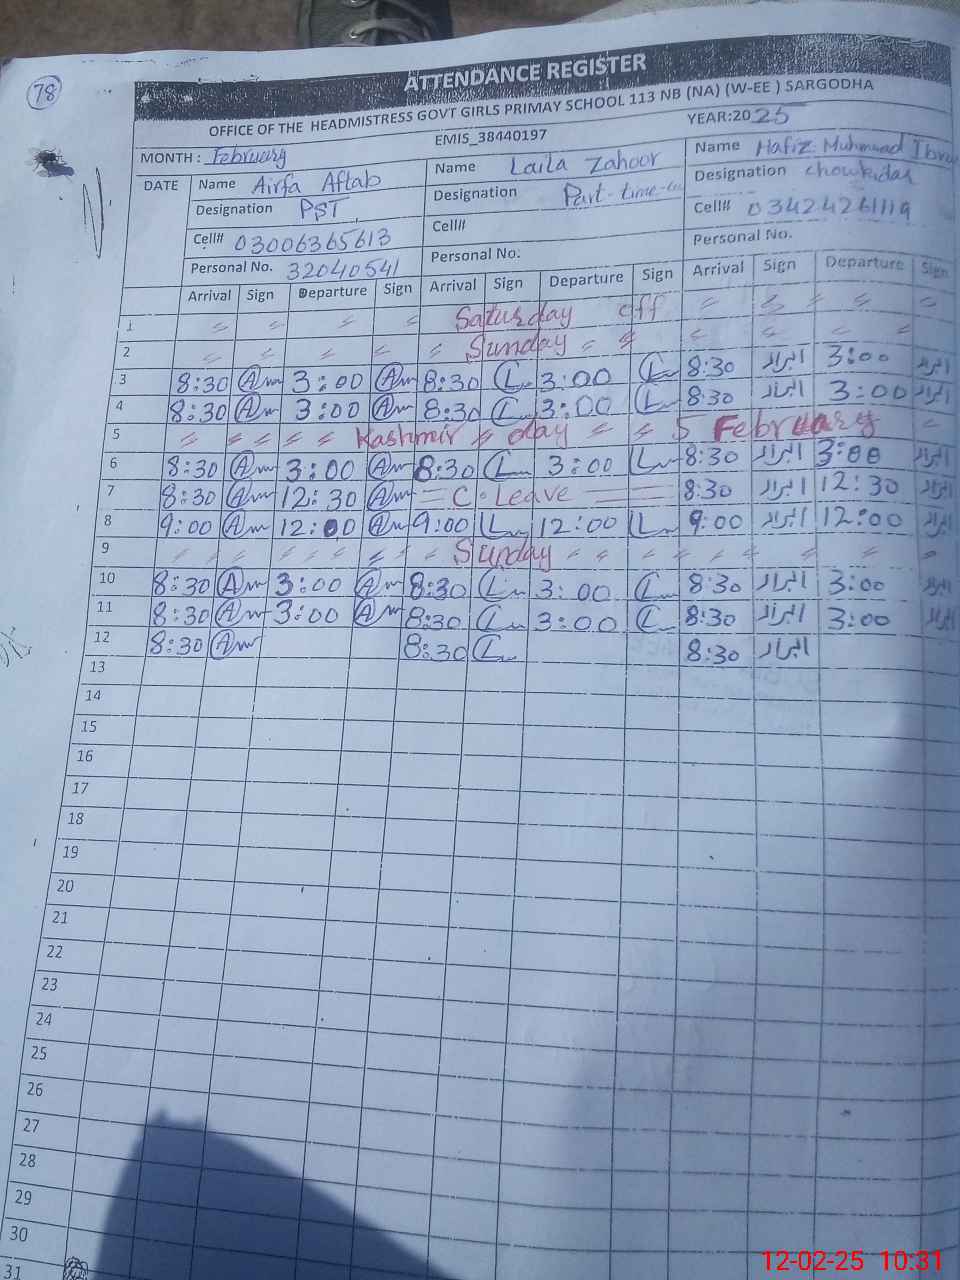 78
ATTENDANCE REGISTER
OFFICE OF THE HEADMISTRESS GOVT GIRLS PRIMAY SCHOOL 113 NB (NA) (W-EE ) SARGODHA
EMIS_38440197
YEAR:2025
MONTH : February
DATE
Name Airfa Aftab
Designation PST
Cell# 03006365613
Personal No. 32040541
Name Laila Zahoor
Designation Part-time-
Cell#
Personal No.
Name Hafiz Muhmmad
Designation chowkidar
Cell# 03424261119
Personal No.
Arrival Sign Departure Sign Arrival Sign Departure Sign Arrival Sign Departure Sign
1 〃 〃 〃 〃 Saturday off 〃 〃 〃 〃 〃
2 〃 〃 〃 〃 〃 Sunday 〃 〃 〃 〃 〃 〃
3 8:30 Am 3:00 Am 8:30 L 3:00 L 8:30 ابرار 3:00 ابرار
4 8:30 Am 3:00 Am 8:30 L 3:00 L 8:30 ابرار 3:00 ابرار
5 〃 〃 〃 〃 〃 Kashmir 〃 day 〃 〃 5 February 〃
6 8:30 Am 3:00 Am 8:30 L 3:00 L 8:30 ابرار 3:00 ابرار
7 8:30 Am 12:30 Am = C.Leave = 8:30 ابرار 12:30 ابرار
8 9:00 Am 12:00 Am 9:00 L 12:00 L 9:00 ابرار 12:00 ابرار
9 〃 〃 〃 〃 〃 〃 〃 〃 Sunday 〃 〃 〃 〃 〃 〃 〃 〃
10 8:30 Am 3:00 Am 8:30 L 3:00 L 8:30 ابرار 3:00 ابرار
11 8:30 Am 3:00 Am 8:30 L 3:00 L 8:30 ابرار 3:00 ابرار
12 8:30 Am 8:30 L 8:30 ابرار
13
14
15
16
17
18
19
20
21
22
23
24
25
26
27
28
29
30
31
12-02-25 10:31